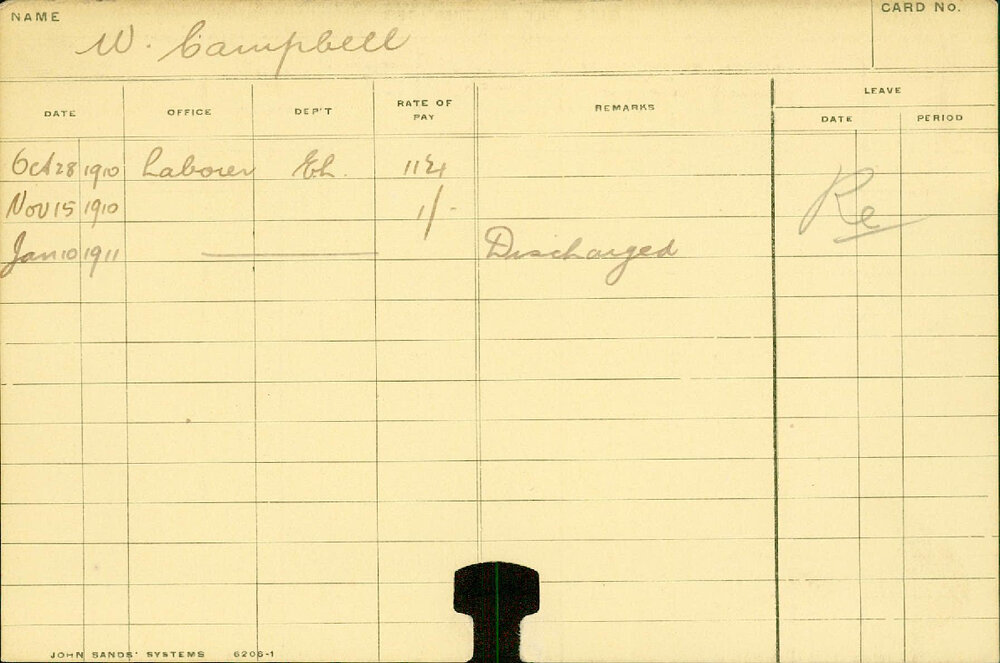 NAME W. Campbell CARD No.
DATE OFFICE DEP'T RATE OF PAY REMARKS LEAVE
DATE PERIOD
Oct 28 1910 Laborer
Nov 15 1910 1/-
Jan 10 1911 Discharged
Re
JOHN SANDS' SYSTEMS 6206-1